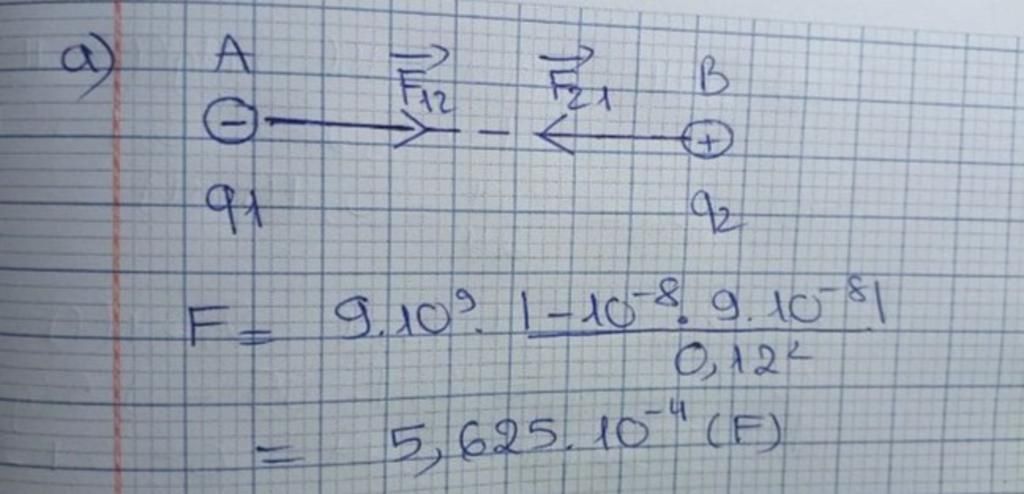 a) A F₁₂ F₂₁ B
− +
q₁ q₂
F = 9.10⁹. |−10⁻⁸. 9.10⁻⁸| / 0,12²
= 5,625.10⁻⁴ (F)